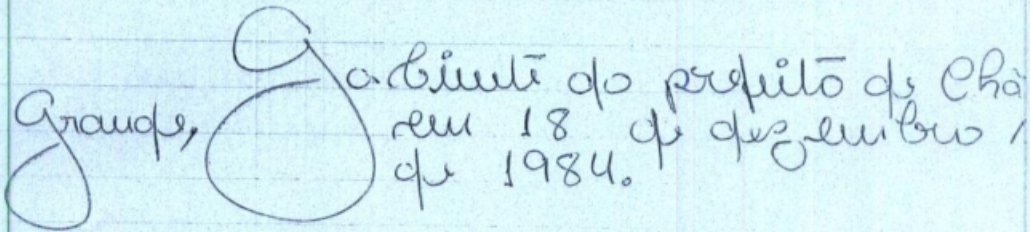 Gabinete do prefeito de Chã
Grande, em 18 de dezembro
de 1984.